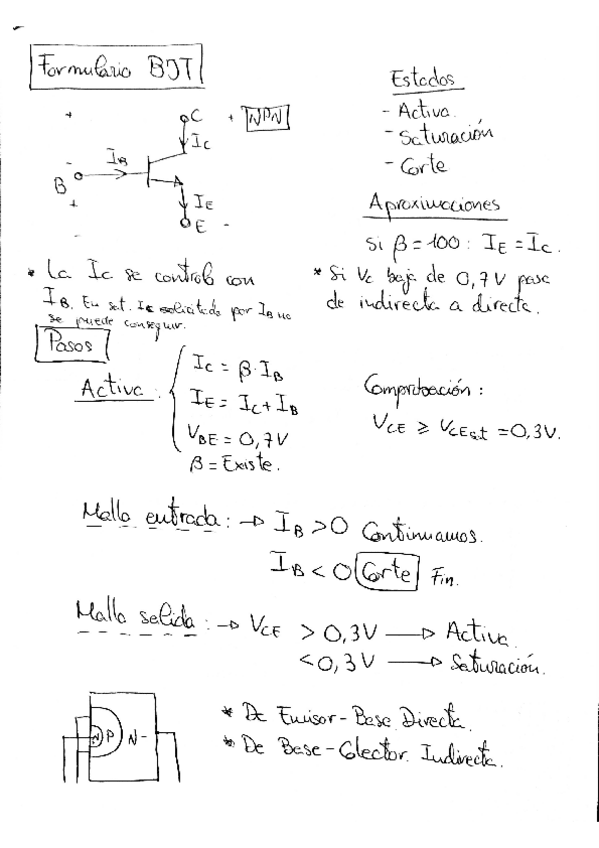 Formulario BJT
Estados
- Activa.
- Saturación
- Corte
+ C + NPN
I_C
- I_B
B
+ I_E
- E -
Aproximaciones
Si β = 100 : I_E = I_C.
* La I_C se controla con
I_B. En sat. I_C solicitada por I_B no
se puede conseguir.
* Si V_C baja de 0,7V pasa
de indirecta a directa.
Pasos
Activa:
I_C = β · I_B
I_E = I_C + I_B
V_BE = 0,7V
β = Existe.
Comprobación:
V_CE ≥ V_CEsat = 0,3V.
Malla entrada: → I_B > 0 Continuamos.
I_B < 0 Corte Fin.
Malla salida: → V_CE > 0,3V → Activa.
< 0,3V → Saturación.
N P N -
* De Emisor-Base Directa.
* De Base-Colector. Indirecta.